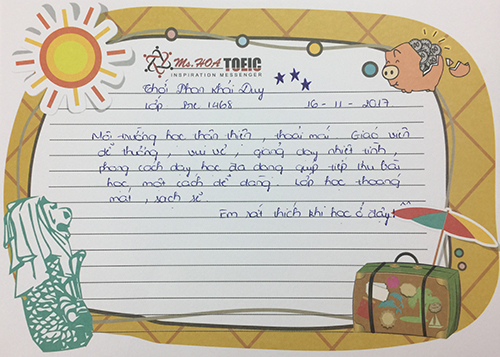 Ms. HOA TOEIC
INSPIRATION MESSENGER
Thái Phan Khải Duy
Lớp Pre 1468 16-11-2017
Môi trường học thân thiện, thoải mái. Giáo viên
dễ thương, vui vẻ, giảng dạy nhiệt tình,
phong cách dạy học đa dạng giúp tiếp thu bài
học một cách dễ dàng. Lớp học thoáng
mát, sạch sẽ
Em rất thích khi học ở đây! ^^